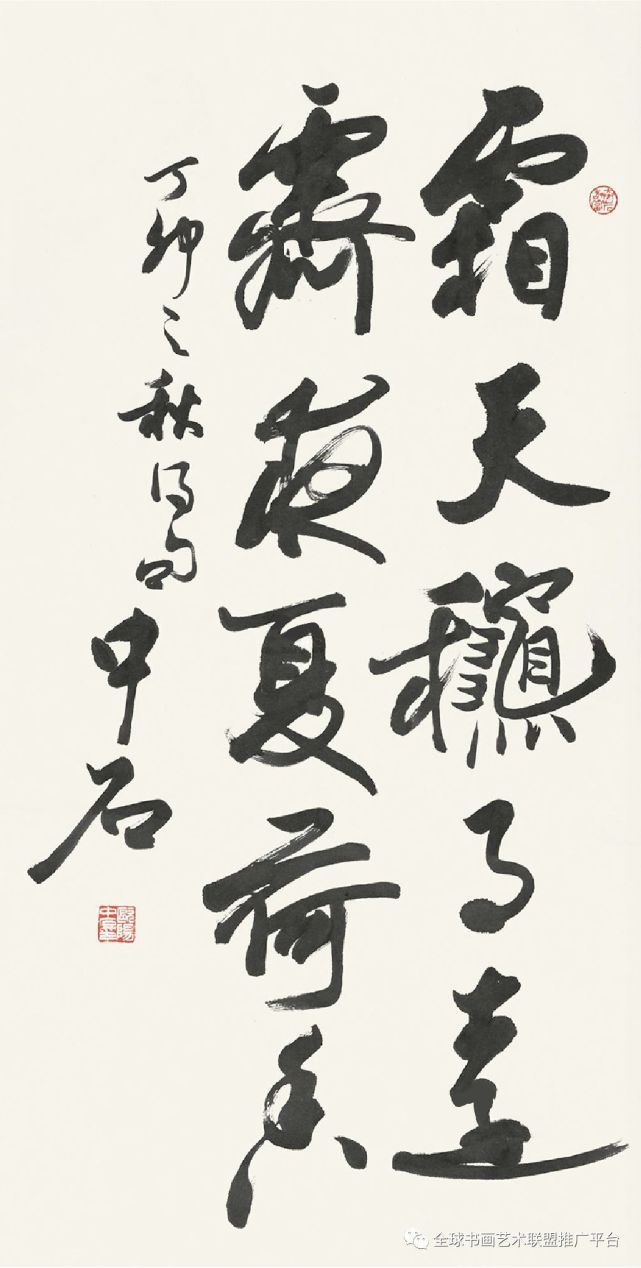 霜天龝月遠
霽夜夏荷香
丁卯之秋得句
中石
歐陽
全球书画艺术联盟推广平台